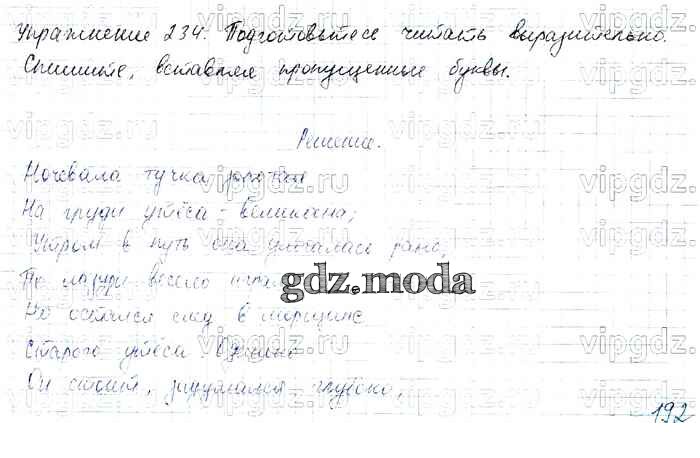 Упражнение 234. Подготовьтесь читать выразительно.
Спишите, вставляя пропущенные буквы.
Решение.
Ночевала тучка золотая
На груди утёса-великана;
Утром в путь она умчалась рано,
По лазури весело играя
Но остался след в морщине
Старого утёса. Одиноко
Он стоит, задумался глубоко,
gdz.moda
vipgdz.ru
192